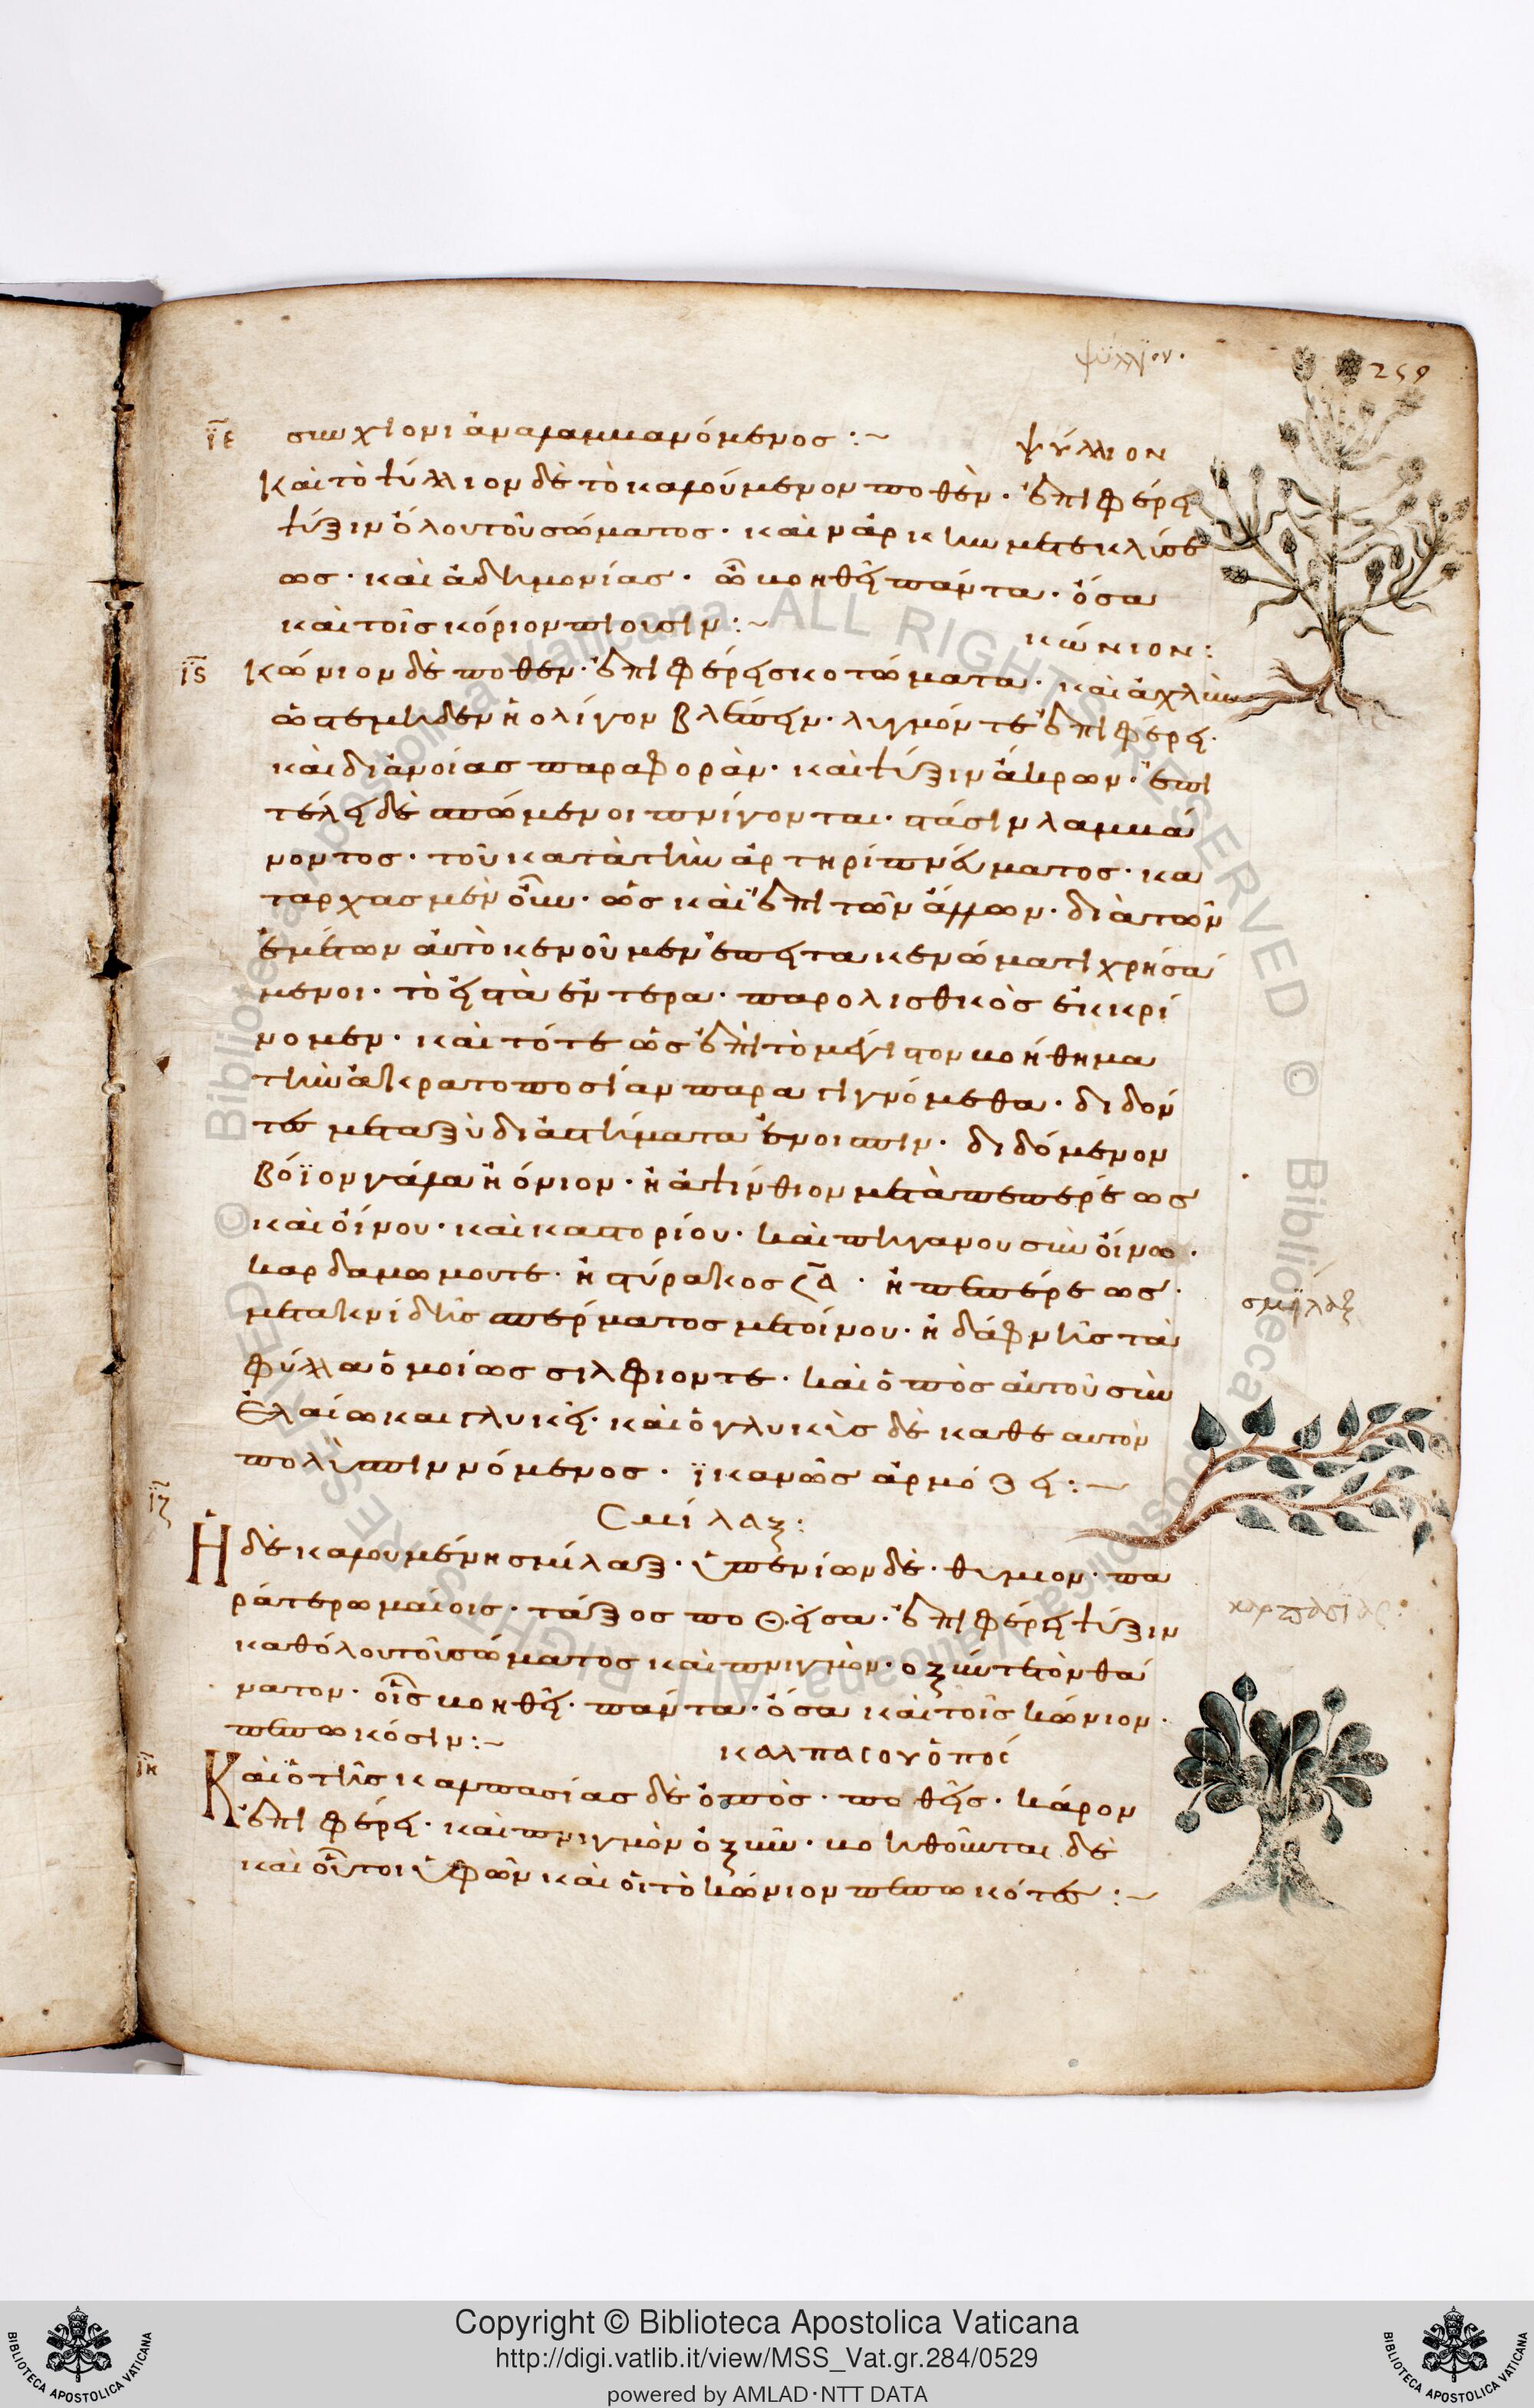 ψύλλιον·
259
ιε
σὺν χίονι ἀναλαμμανόμενος :~
ψύλλιον
καὶ τὸ ψύλλιον δὲ τὸ καλούμενον ποθὲν· ἐπιφέρει
ψύξιν ὅλου τοῦ σώματος· καὶ νάρκην μετ ἐκλύσε
ως· καὶ ἀδημονίας· ὧ βοηθεῖ πάντα· ὅσα
καὶ τοῖς κόριον πιοῦσιν :~
κώνιον :
ις
κώνιον δὲ ποθὲν· ἐπιφέρει σκοτώματα· καὶ ἀχλὺν
ὥστε μηδὲν ἢ ολίγον βλέπειν· λυγμόν τε ἐπιφέρει·
καὶ διανοίας παραφοράν· καὶ ψύξιν ἄκρων· ἐπὶ
τέλει δὲ σπώμενοι πνίγονται· στάσιν λαμβά
νοντος· τοῦ κατὰ τὴν ἀρτηρί πνεύματος· κα
ταρχὰς μὲν οὖν· ὡς καὶ ἐπὶ τῶν ἄλλων· διὰ τῶν
ἐμέτων ἀυτὸ κενοῦμεν ἔπειτα κενώματι χρησά
μενοι· τὸ εἰς τὰ ἔντερα· παρολισθικὸς ἐκκρί
νομεν· καὶ τότε ὡς ἐπὶ τὸ μέγιστον βοήθημα
τὴν ἀκρατοποσίαν παραγιγνόμεθα· διδόν
τες μεταξὺ διαστήματα ἔνοις πιν· διδόμενον
βόϊον γάλα ἢ όνιον· ἢ ἀψίνθιον μετὰ πεπέρεως
καὶ οἴνου· καὶ καστορίου· καὶ πηγάνου σὺν οἴνω·
καρδαμώμου τε· ἢ στύρακος ʓ α · ἢ πεπέρεως·
μετακνίδης σπέρματος μετ οίνου· ἢ δάφνης τὰ
φύλλα ὁμοίως σιλφιον τε· καὶ ὀπὸς ἀυτοῦ σὺν
ἐλαίω και γλυκεῖ· καὶ ὁ γλυκὺς δὲ καθε αυτὸν
πολὺ πινόμενος· ϊκανῶς ἁρμόζει :~
ιζ
Σμίλαξ :
Ἡ δὲ καλουμένη σμίλαξ· ὑπενίων δὲ· θύμιον· πα
ρατερωμαίοις· τάξος ποθεῖσα· ἐπιφέρει ψύξιν
καθόλου τοῦ σώματος καὶ πνιγμὸν· οξύν τε τὸν θά
νατον· οἷς βοηθεῖ· πάντα· ὅσα καὶ τοῖς κώνιον·
πεπωκόσιν :~
ιη
καλπασου ὀπός
Καὶ ὁ τῆς καρπασίας δὲ ὀπὸς· ποθεῖς· κάρον
ἐπιφέρει· καὶ πνιγμὸν ὀξὺν· βοηθοῦνται δὲ
καὶ οὗτοι ὑφῶν καὶ οἱ τὸ κώνιον πεπωκότες :~
σμίλαξ
καρπασίας :
Copyright © Biblioteca Apostolica Vaticana
http://digi.vatlib.it/view/MSS_Vat.gr.284/0529
powered by AMLAD·NTT DATA
BIBLIOTECA APOSTOLICA VATICANA
BIBLIOTECA APOSTOLICA VATICANA